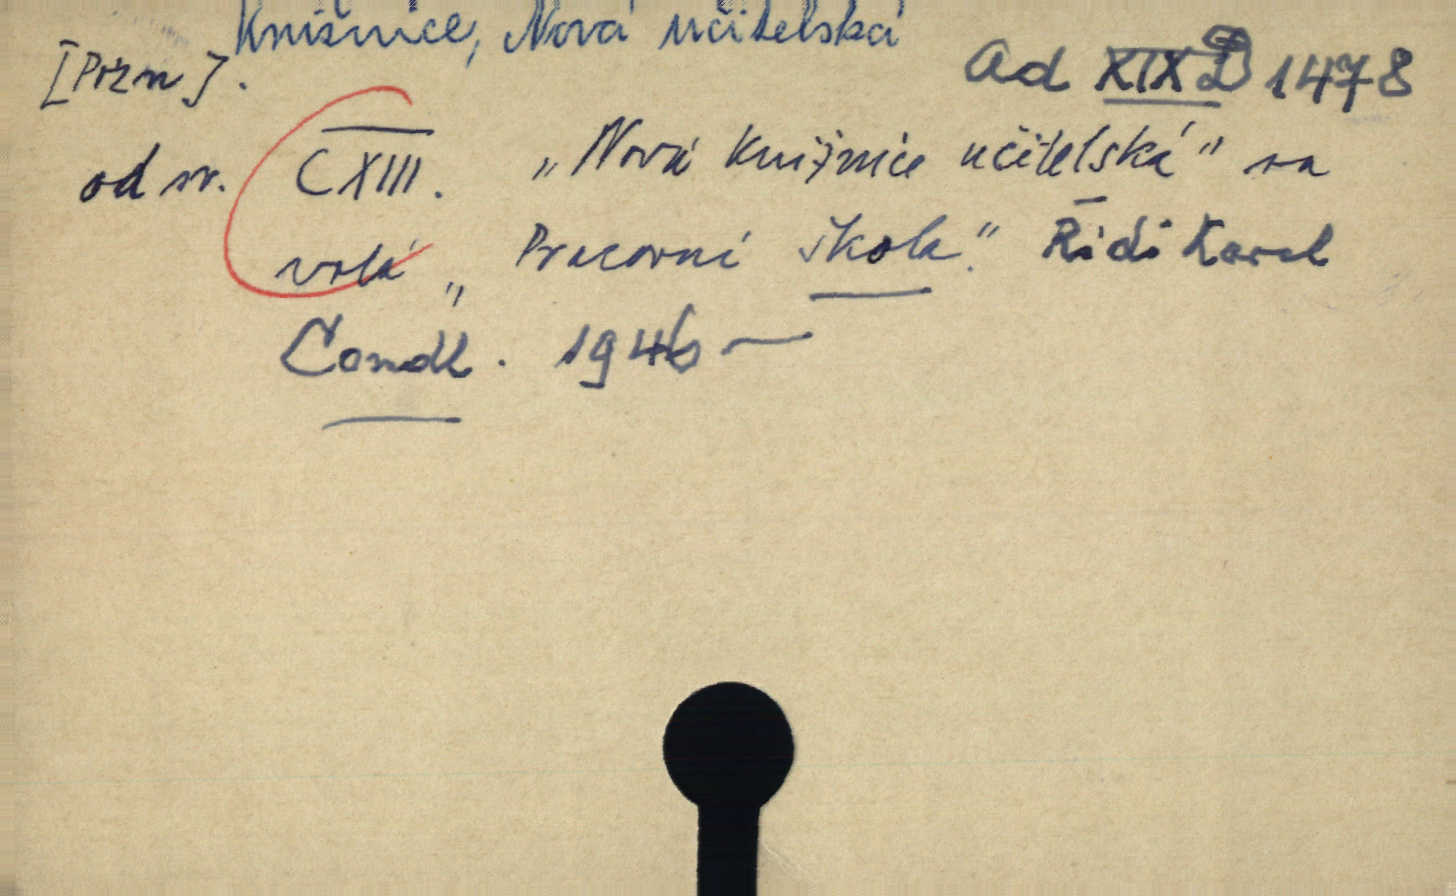 Knižnice, Nová učitelská
[Pozn]. Ad XIX D 1478
od sv. CXIII. „Nová knižnice učitelská" sa
volá „Pracovní škola." Řídí Karel
Čondl. 1946 —